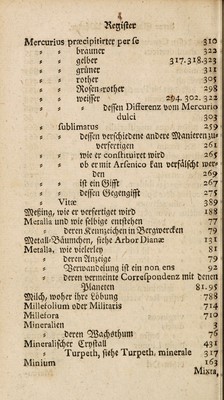 Register
Mercurius præcipitirter per ſe 310
〃 〃 brauner 322
〃 〃 gelber 317. 318. 323
〃 〃 grüner 311
〃 〃 rother 305
〃 〃 Roſen-rother 298
〃 〃 weiſſer 294. 302. 322
〃 〃 〃 deſſen Differenz vom Mercurio
dulci 303
〃 ſublimatus 259
〃 〃 deſſen verſchiedene andere Manieren zu
verfertigen 261
〃 〃 wie er conſtruiret wird 265
〃 〃 ob er mit Arſenico kan verfälſcht wer-
den 269
〃 〃 iſt ein Gifft 267
〃 〃 deſſen Gegengifft 275
〃 Vitæ 389
Meßing, wie er verfertiget wird 188
Metalla und wie ſelbige entſtehen 79
〃 deren Kennzeichen in Bergwercken 79
Metall-Bäumchen, ſiehe Arbor Dianæ 131
Metalla, wie vielerley 81
〃 deren Anzeige 79
〃 Verwandelung iſt ein non ens 92
〃 deren vermeinte Correſpondenz mit denen
Planeten 81. 95
Milch, woher ihre Löbung 788
Millefolium oder Militaris 714
Milleſora 710
Mineralien 3
〃 deren Wachsthum 76
Mineraliſcher Cryſtall 431
〃 Turpeth, ſiehe Turpeth. minerale 317
Minium 163
Mixta,